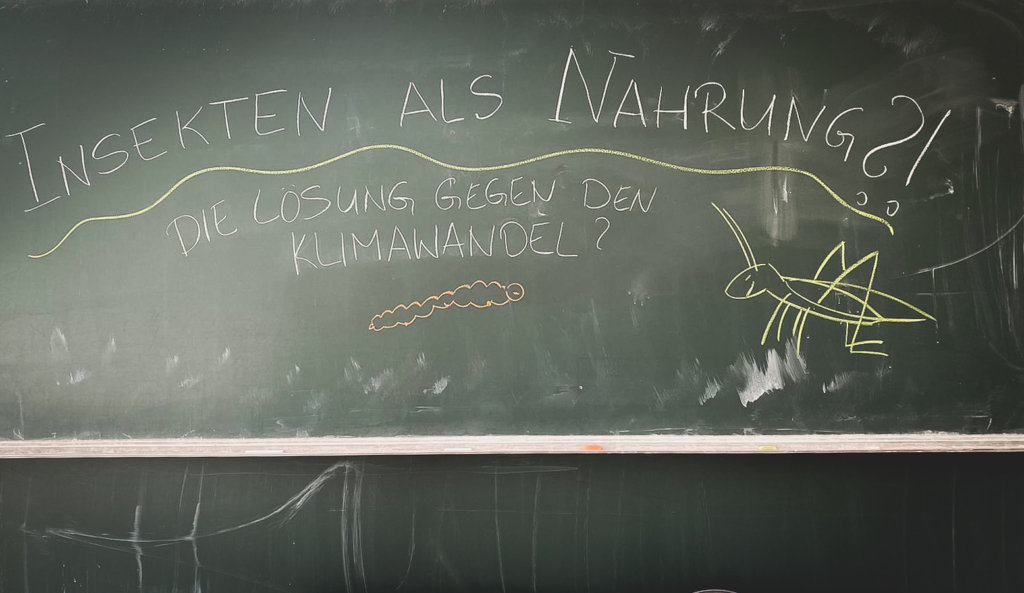 INSEKTEN ALS NAHRUNG?!
DIE LÖSUNG GEGEN DEN
KLIMAWANDEL?